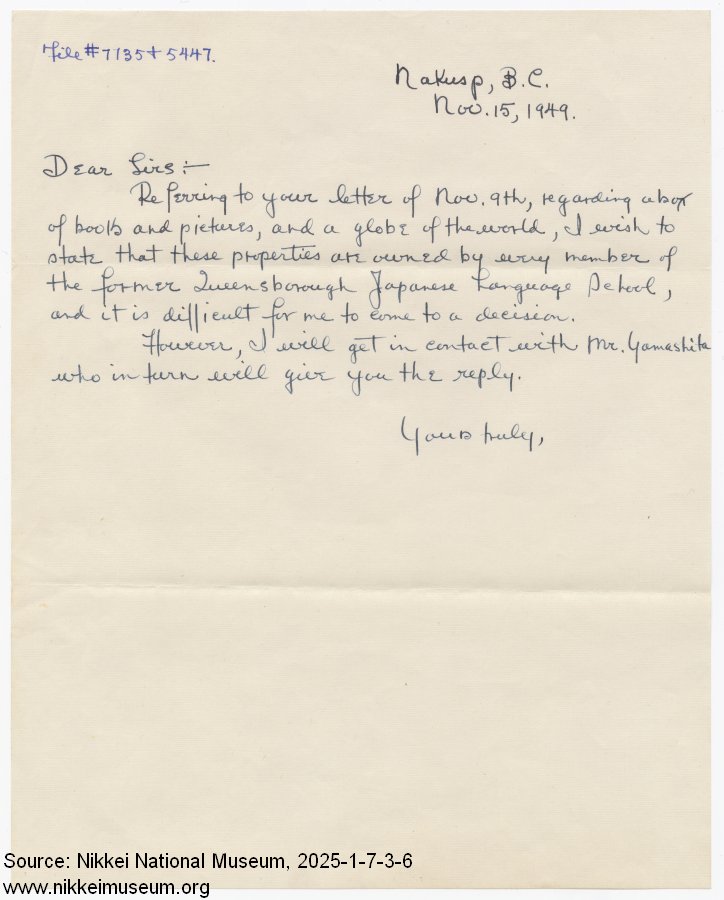 File #7135 + 5447.
Nakusp, B.C.
Nov. 15, 1949.
Dear Sirs:-
Referring to your letter of Nov. 9th, regarding a box
of books and pictures, and a globe of the world, I wish to
state that these properties are owned by every member of
the former Queensborough Japanese Language School,
and it is difficult for me to come to a decision.
However, I will get in contact with Mr. Yamashita
who in turn will give you the reply.
Yours truly,
Source: Nikkei National Museum, 2025-1-7-3-6
www.nikkeimuseum.org